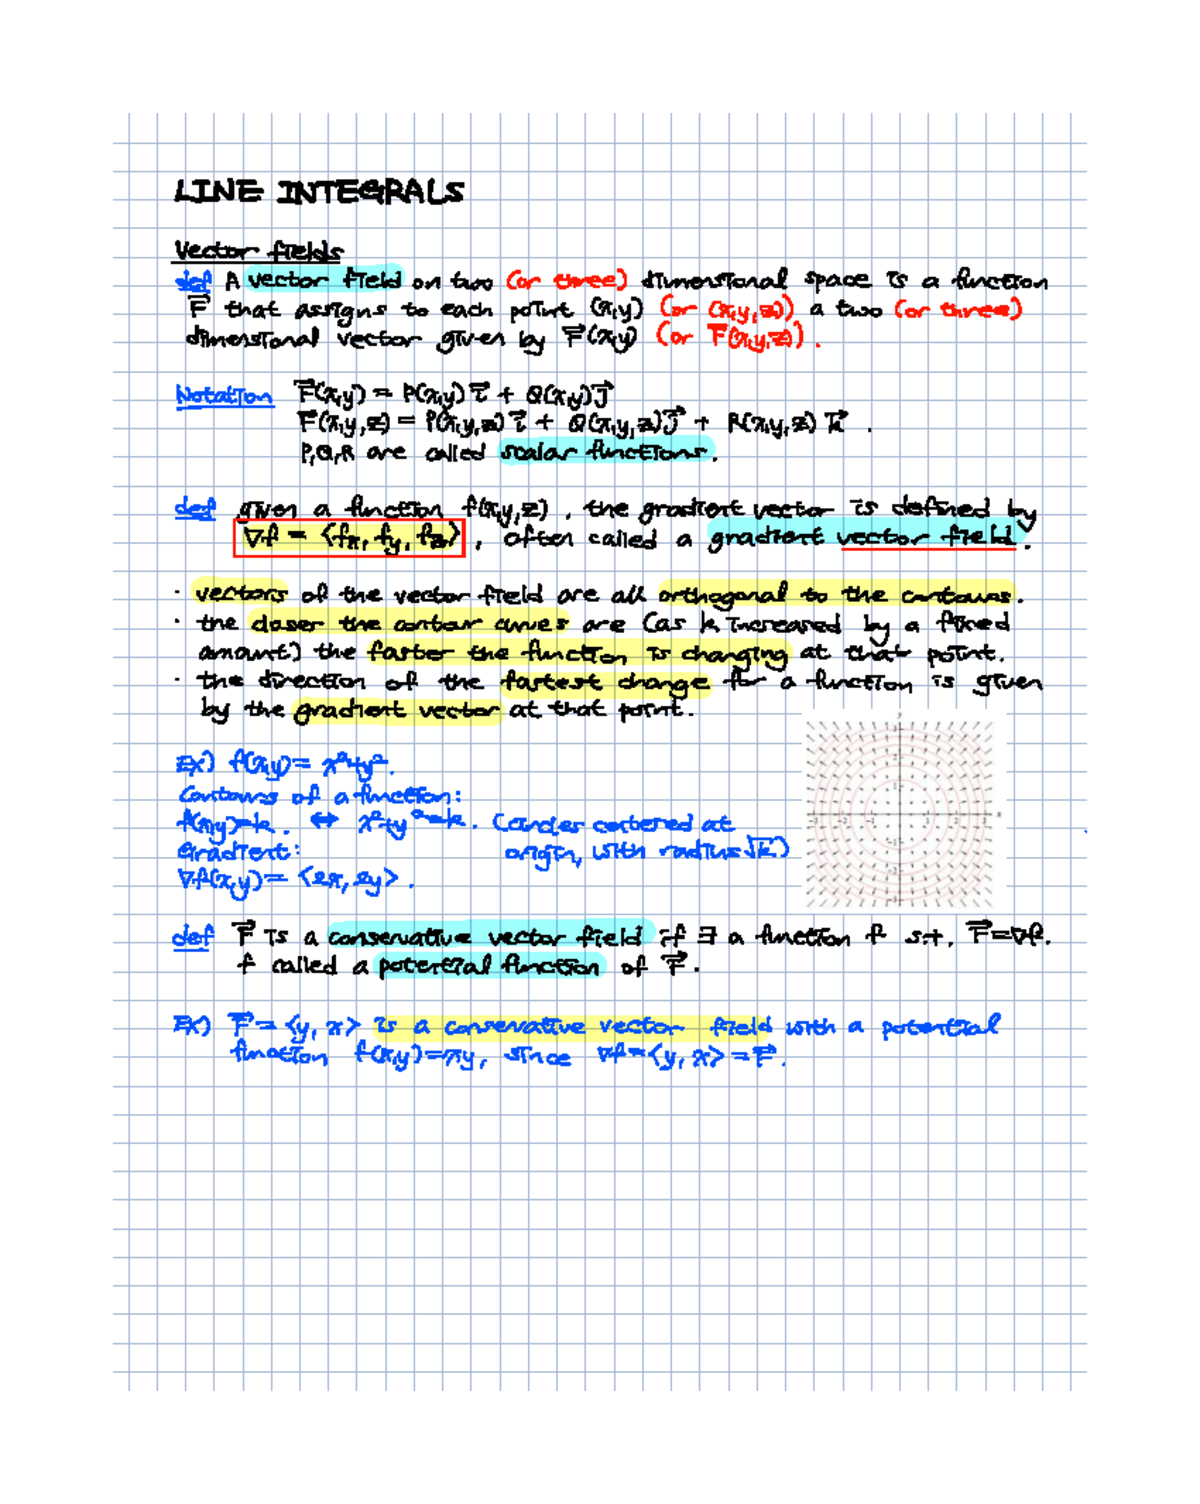 LINE INTEGRALS
Vector fields
def A vector field on two (or three) dimensional space is a function
F⃗ that assigns to each point (x,y) (or (x,y,z)) a two (or three)
dimensional vector given by F⃗(x,y) (or F⃗(x,y,z)).
Notation F⃗(x,y) = P(x,y) i⃗ + Q(x,y) j⃗
F⃗(x,y,z) = P(x,y,z) i⃗ + Q(x,y,z) j⃗ + R(x,y,z) k⃗ .
P,Q,R are called scalar functions.
def given a function f(x,y,z), the gradient vector is defined by
∇f = <fx, fy, fz> , often called a gradient vector field.
· vectors of the vector field are all orthogonal to the contours.
· the closer the contour curves are (as k increased by a fixed
amount) the faster the function is changing at that point.
· the direction of the fastest change for a function is given
by the gradient vector at that point.
Ex) f(x,y) = x²+y².
Contours of a function:
f(x,y)=k. ↔ x²+y²=k. (circles centered at
Gradient: origin, with radius √k)
∇f(x,y) = <2x, 2y>.
def F⃗ is a conservative vector field if ∃ a function f s.t. F⃗=∇f.
f called a potential function of F⃗.
Ex) F⃗ = <y, x> is a conservative vector field with a potential
function f(x,y)=xy, since ∇f=<y, x> = F⃗.